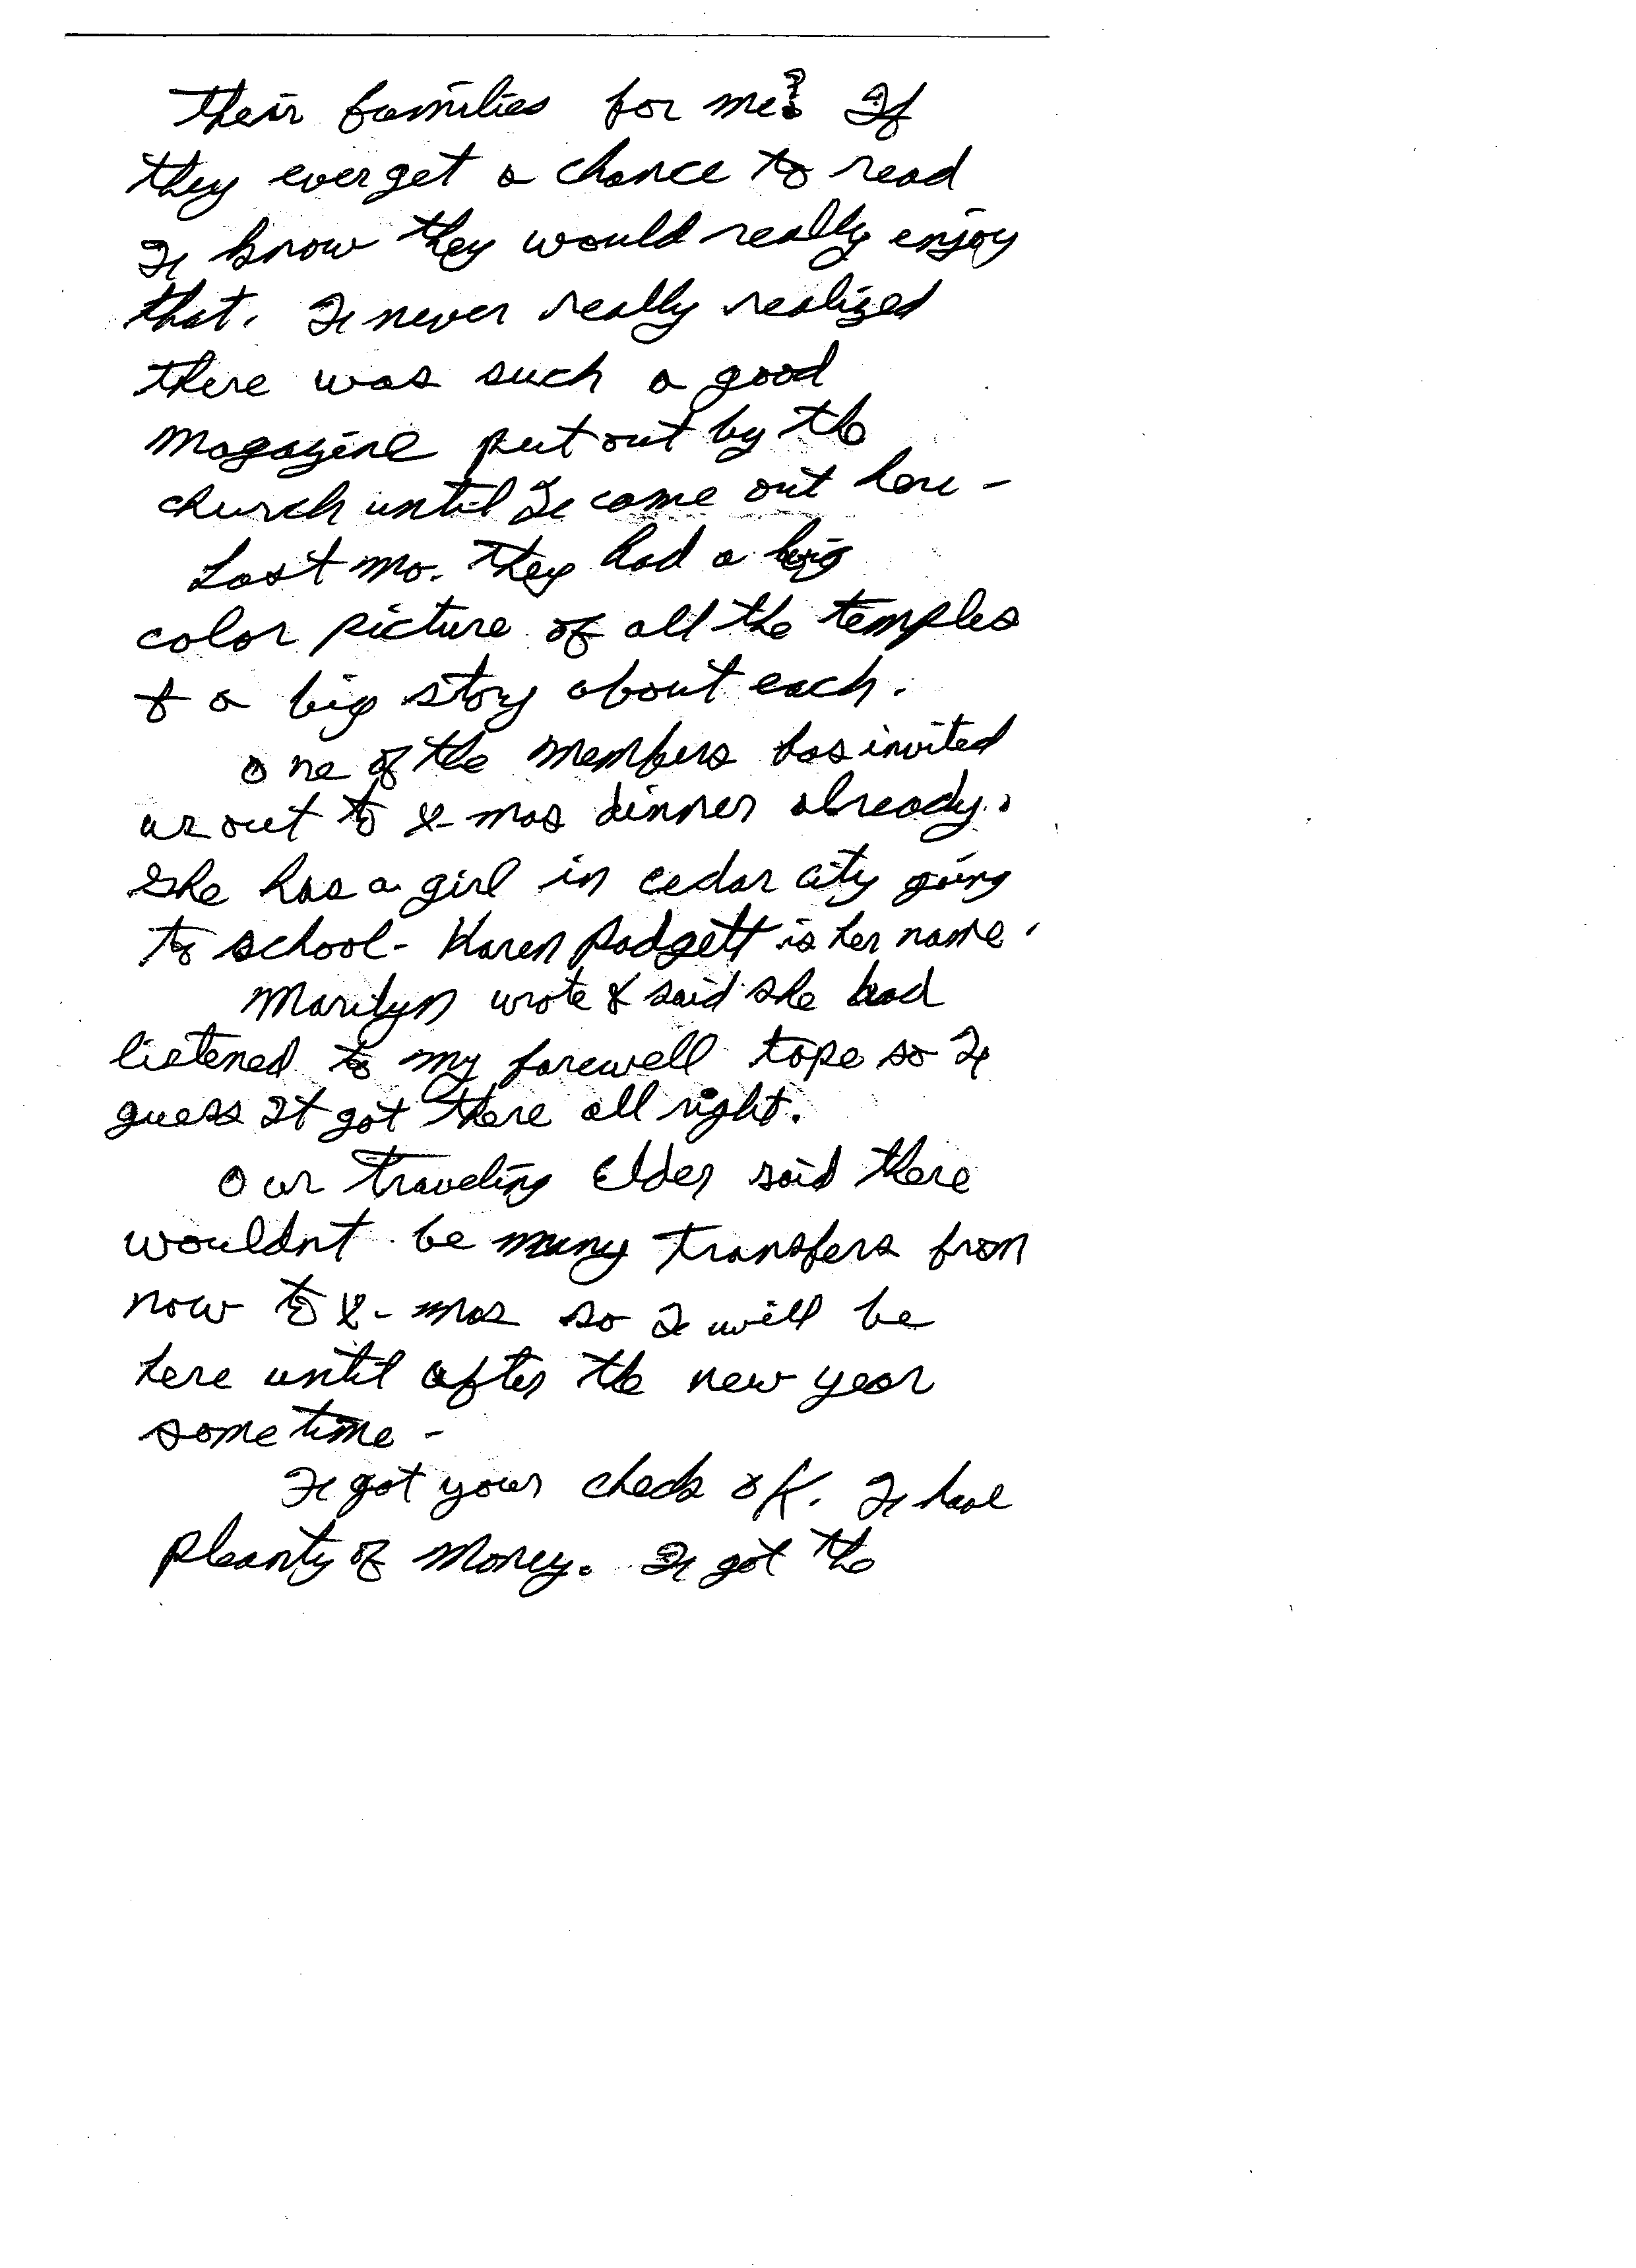 their families for me? If
they ever get a chance to read
I know they would really enjoy
that. I never really realized
there was such a good
magazine put out by the
church until I came out here -
Last mo. they had a big
color picture of all the temples
& a big story about each.
One of the members has invited
us out to X-mas dinner already.
She has a girl in cedar city going
to school - Karen Padgett is her name.
Marilyn wrote & said she had
listened to my farewell tape so I
guess It got there all right.
Our traveling Elder said there
wouldnt be many transfers from
now to X-mas so I will be
here until after the new year
sometime -
I got your check OK. I have
pleanty of money. I got the